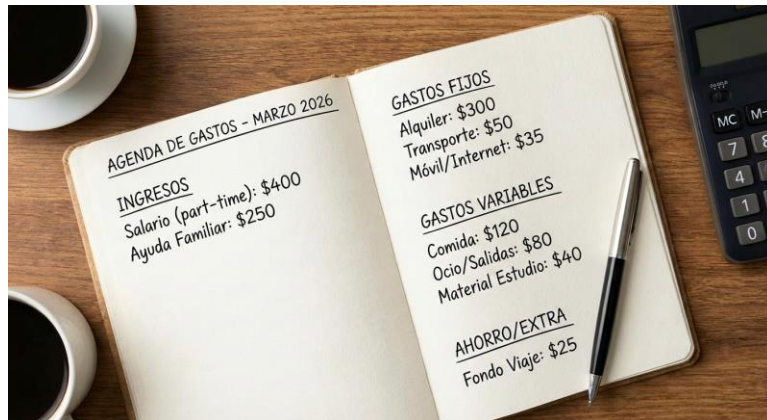 AGENDA DE GASTOS – MARZO 2026
INGRESOS
Salario (part-time): $400
Ayuda Familiar: $250
GASTOS FIJOS
Alquiler: $300
Transporte: $50
Móvil/Internet: $35
GASTOS VARIABLES
Comida: $120
Ocio/Salidas: $80
Material Estudio: $40
AHORRO/EXTRA
Fondo Viaje: $25
MC
7 8
4
1
0